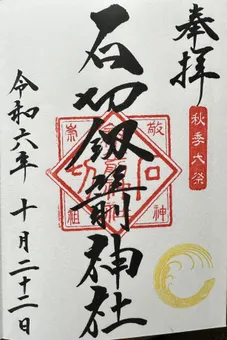 奉拝
秋季大祭
石切劔箭神社
敬神
崇祖
石切
令和六年 十月二十二日